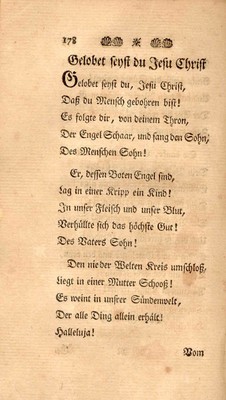 178
Gelobet seyst du Jesu Christ
Gelobet seyst du, Jesu Christ,
Daß du Mensch gebohren bist!
Es folgte dir, von deinem Thron,
Der Engel Schaar, und sang den Sohn,
Des Menschen Sohn!
Er, dessen Boten Engel sind,
Lag in einer Kripp ein Kind!
In unser Fleisch und unser Blut,
Verhüllte sich das höchste Gut!
Des Vaters Sohn!
Den nie der Welten Kreis umschloß,
Liegt in einer Mutter Schooß!
Es weint in unsrer Sündenwelt,
Der alle Ding allein erhält!
Halleluja!
Vom